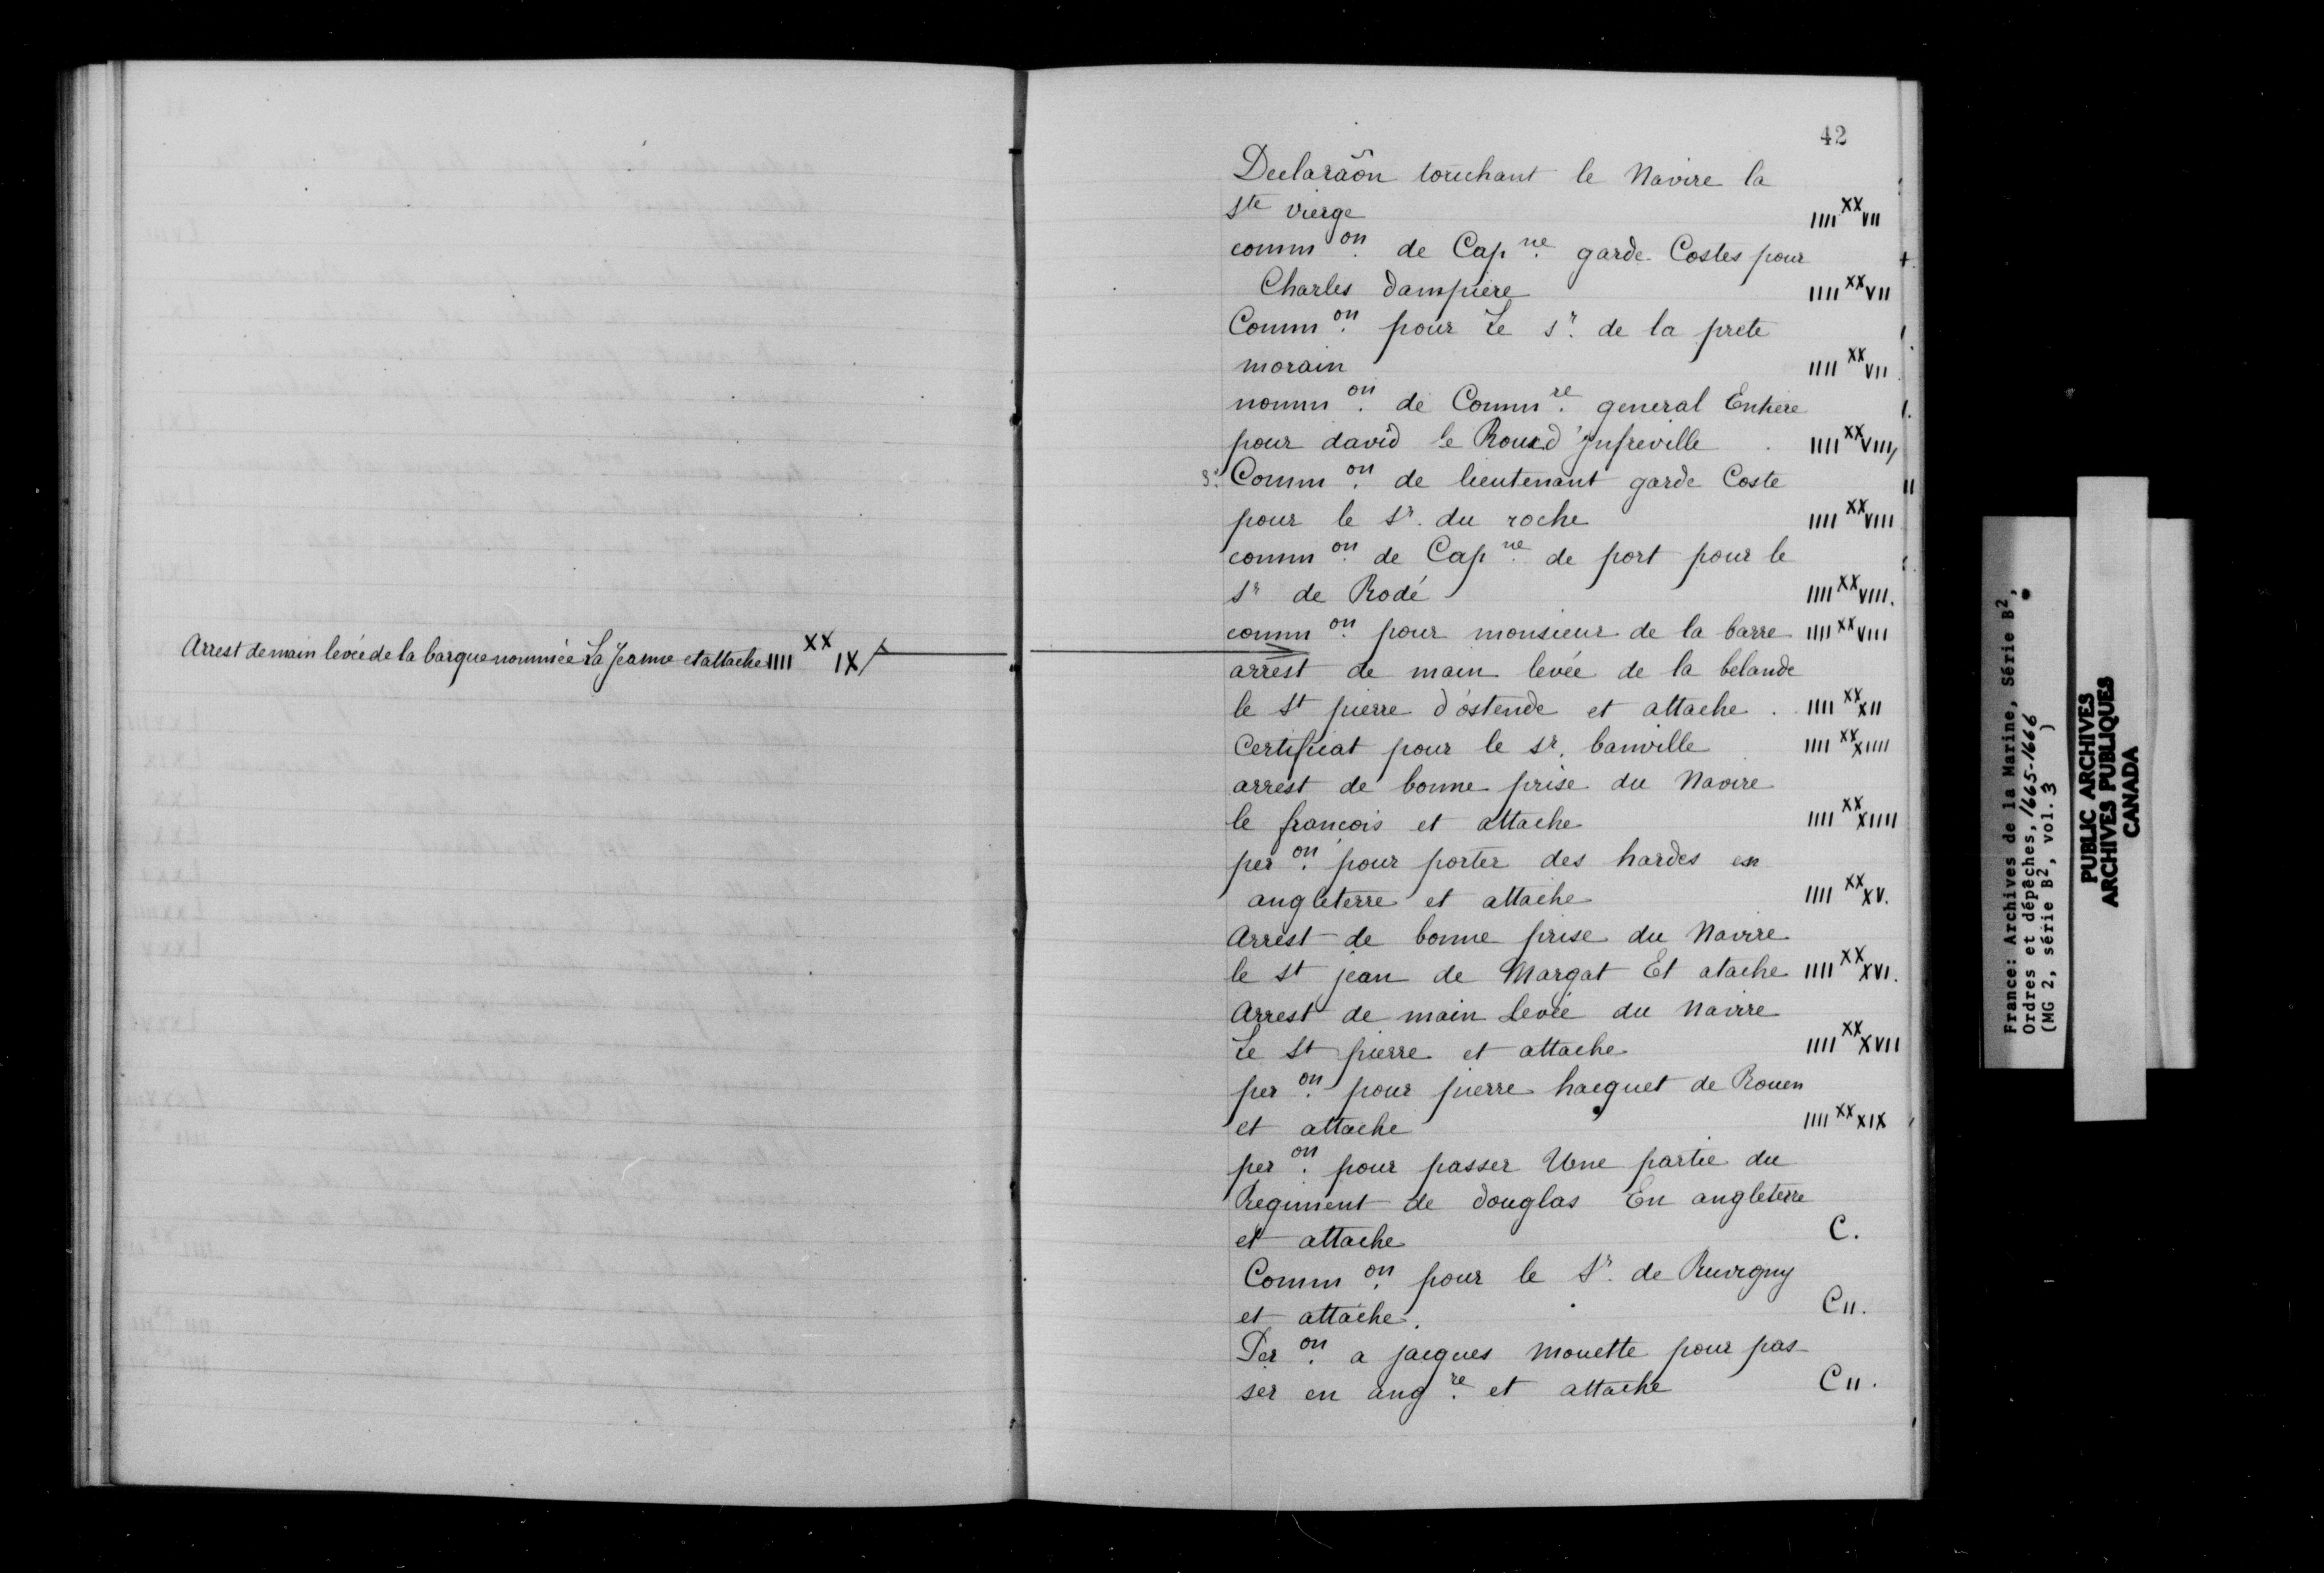 Arrest de main levée de la barque nommée La Jeanne et attache IIII XX IX
42
Declaraõn touchant le Navire la
Ste Vierge IIII XX VII
comm on. de Cap ne. garde Costes pour
Charles dampiere IIII XX VII
Comm on. pour Le sr. de la prete
morain IIII XX VII
nomm on. de Comm re. general Entiere
pour david le Roux d'Infreville IIII XX VIII
Comm on. de lieutenant garde Coste
pour le Sr. du roche IIII XX VIII
comm on. de Cap ne. de port pour le
Sr de Rodé IIII XX VIII.
comm on. pour monsieur de la barre IIII XX VIII
arrest de main levée de la belande
le St pierre d'ostende et attache. IIII XX XII
Certificat pour le Sr. banville IIII XX XIIII
arrest de bonne prise du Navire
le françois et attache IIII XX XIIII
per on. pour porter des hardes en
angleterre et attache IIII XX XV.
Arrest de bonne prise du Navire
le St jean de Margat Et atache IIII XX XVI.
Arrest de main Levée du Navire
Le St pierre et attache IIII XX XVII
per on. pour pierre hacquet de Rouen
et attache IIII XX XIX
per on. pour passer Une partie du
Regiment de douglas En angleterre
et attache C.
Comm on. pour le Sr. de Ruvigny
et attache. CII.
Per on. a jacques Mouette pour pas-
ser en ang re. et attache CII.
France: Archives de la Marine, Série B2,
Ordres et dépêches, 1665-1666
(MG 2, série B2, vol. 3 )
PUBLIC ARCHIVES
ARCHIVES PUBLIQUES
CANADA